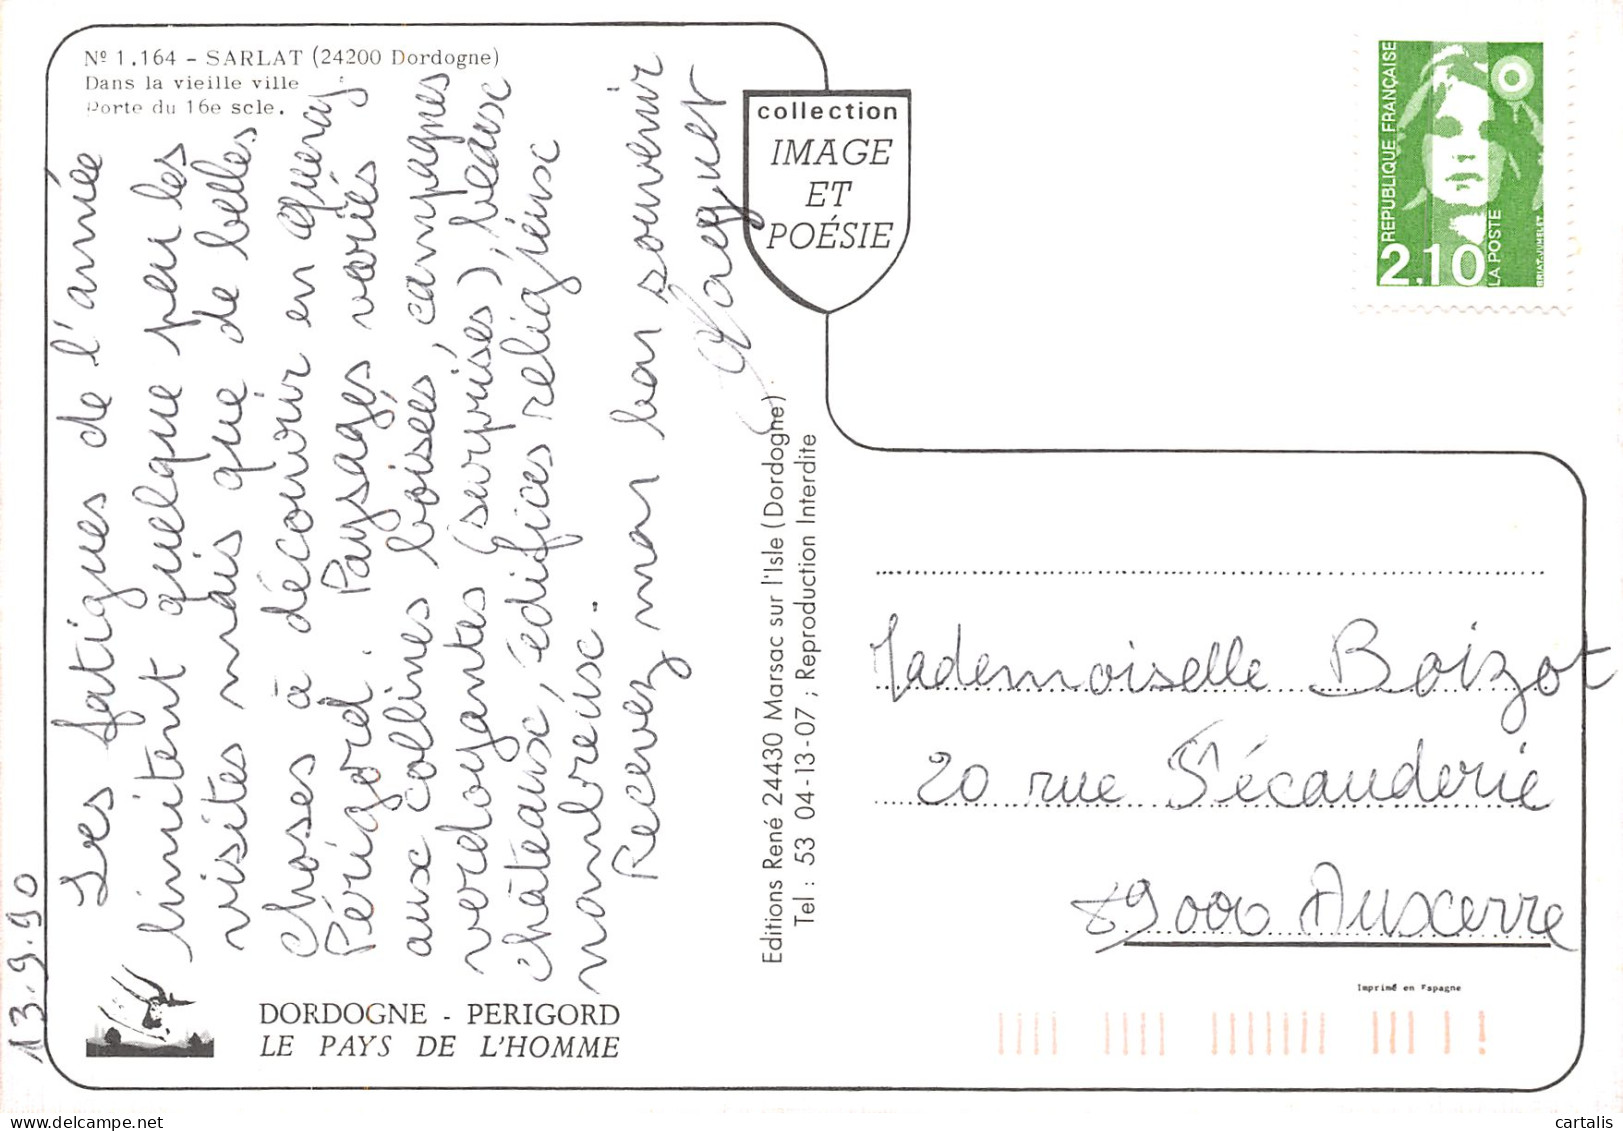 Nº 1.164 - SARLAT (24200 Dordogne)
Dans la vieille ville
Porte du 16e scle.
13.9.90
Les fatigues de l'année
limitent quelque peu les
visites mais que de belles
choses à découvrir en
Périgord. Paysages variés
aux collines boisées, campagnes
verdoyantes (surprises), beaux
châteaux, édifices religieux
nombreux.
Recevez mon bon souvenir
collection
IMAGE
ET
POÉSIE
Editions René 24430 Marsac sur l'Isle (Dordogne)
Tel : 53 04-13-07 ; Reproduction Interdite
DORDOGNE - PERIGORD
LE PAYS DE L'HOMME
REPUBLIQUE FRANÇAISE
2,10
LA POSTE
BRIAT-JUMELET
Mademoiselle Boizot
20 rue l'écauderie
89000 Auxerre
Imprimé en Espagne
cartalis